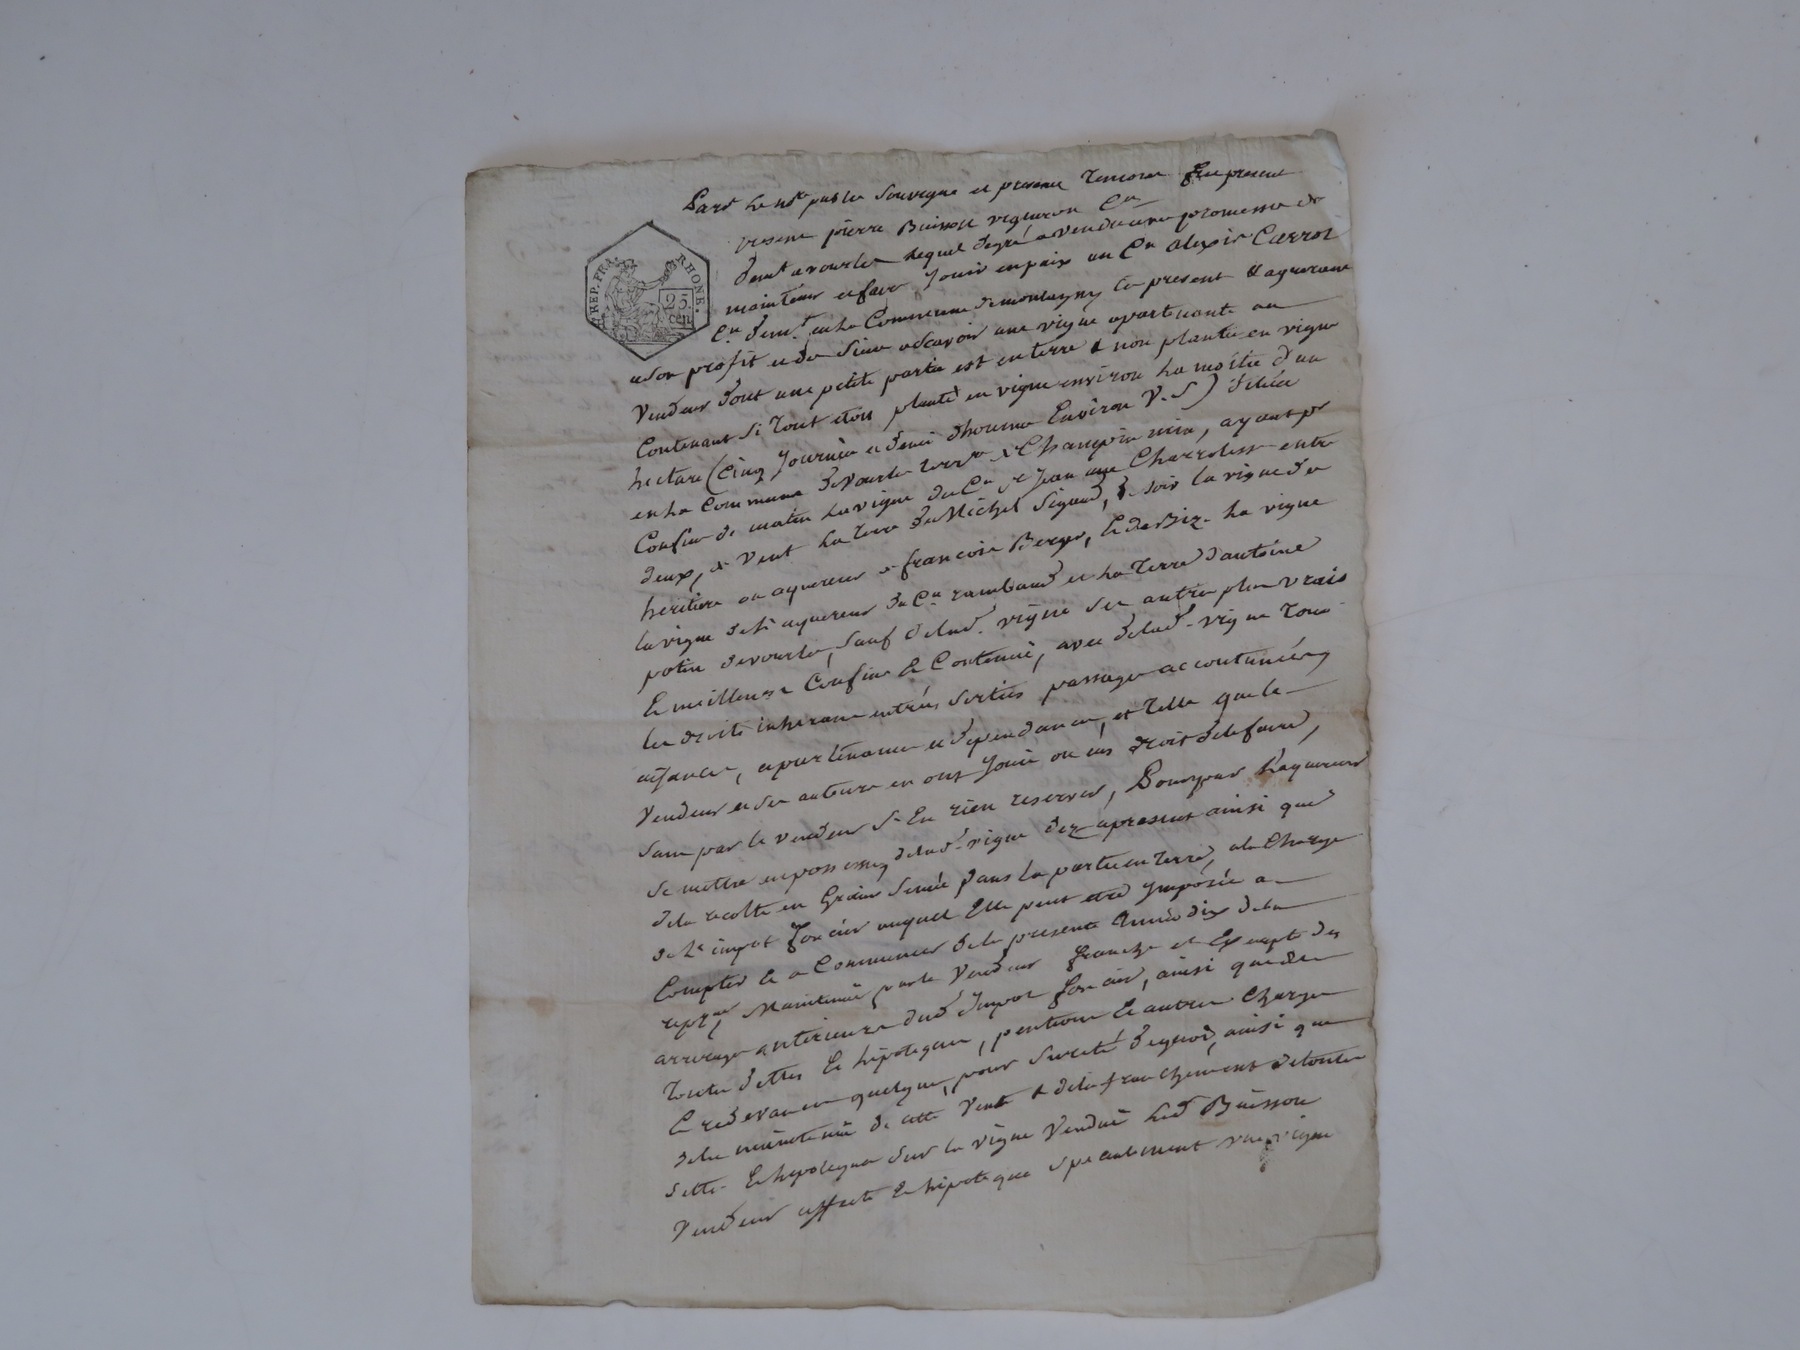 Pard. le nre public soussigné et présens temoins fut present
présent pierre Buisson vigneron Cn
demt a vourles lequel degré a vendu avec promesse de
REP. FRA. RHONE.
25. cen.
maintenir et faire Jouir en paix au Cn alexis Carrot
Cn demt en la Commune de montagny ici present & aquerant
a son profit et des siens a scavoir une vigne apartenante au
Vendeur dont une petite partie est en terre & non plantée en vigne
Contenant si tout etoit planté en vigne environ la moitié d'un
hectare (Cinq Journée et demi d'homme Environ V. S) située
en la Commune de vourles terre de Champin, ayant pr
Confins de matin la vigne du Cn Jean Charrolois entre
deux, de Vent la terre de Michel Sigaud, de soir la vigne des
heritiers ou aquereur de francois Berger, & de Bize la vigne
la vigne de l'aquereur du Cn rambaud et la Terre d'antoine
potin de vourles, sauf de lad. vigne ses autres plus vrais
& meilleurs Confins & Contenue, avec de lad. vigne tous
les droits inherans entrées sorties passages accoutumés
aisances, apartenances et dependances, et telle que le
Vendeur et ses auteurs en ont Joui ou eus droit de le faire,
sans par le vendeur s'En rien reserver, Pourquoi L'aquereur
se mettre en possession de lad. vigne dez apresent ainsi que
de la recolte en Grains semée dans la partie en terre, a la Charge
de l'impot foncier auquel Elle peut etre Imposée a
Compter & a Commencer de la presente Année dix de la
repque, Maintenue par le Vendeur franche et Exempte des
arrerages anterieurs dud Impot foncier, ainsi que de
toutes dettes & hipoteques, pentions & autres Charges
& redevances quelquonques, pour sureté de quoi, ainsi que
de la maintenue de cette Vente & de la franchement de toutes
dettes & hipoteques sur la vigne Vendue led Buisson
Vendeur affecte & hipoteque specialement une vigne